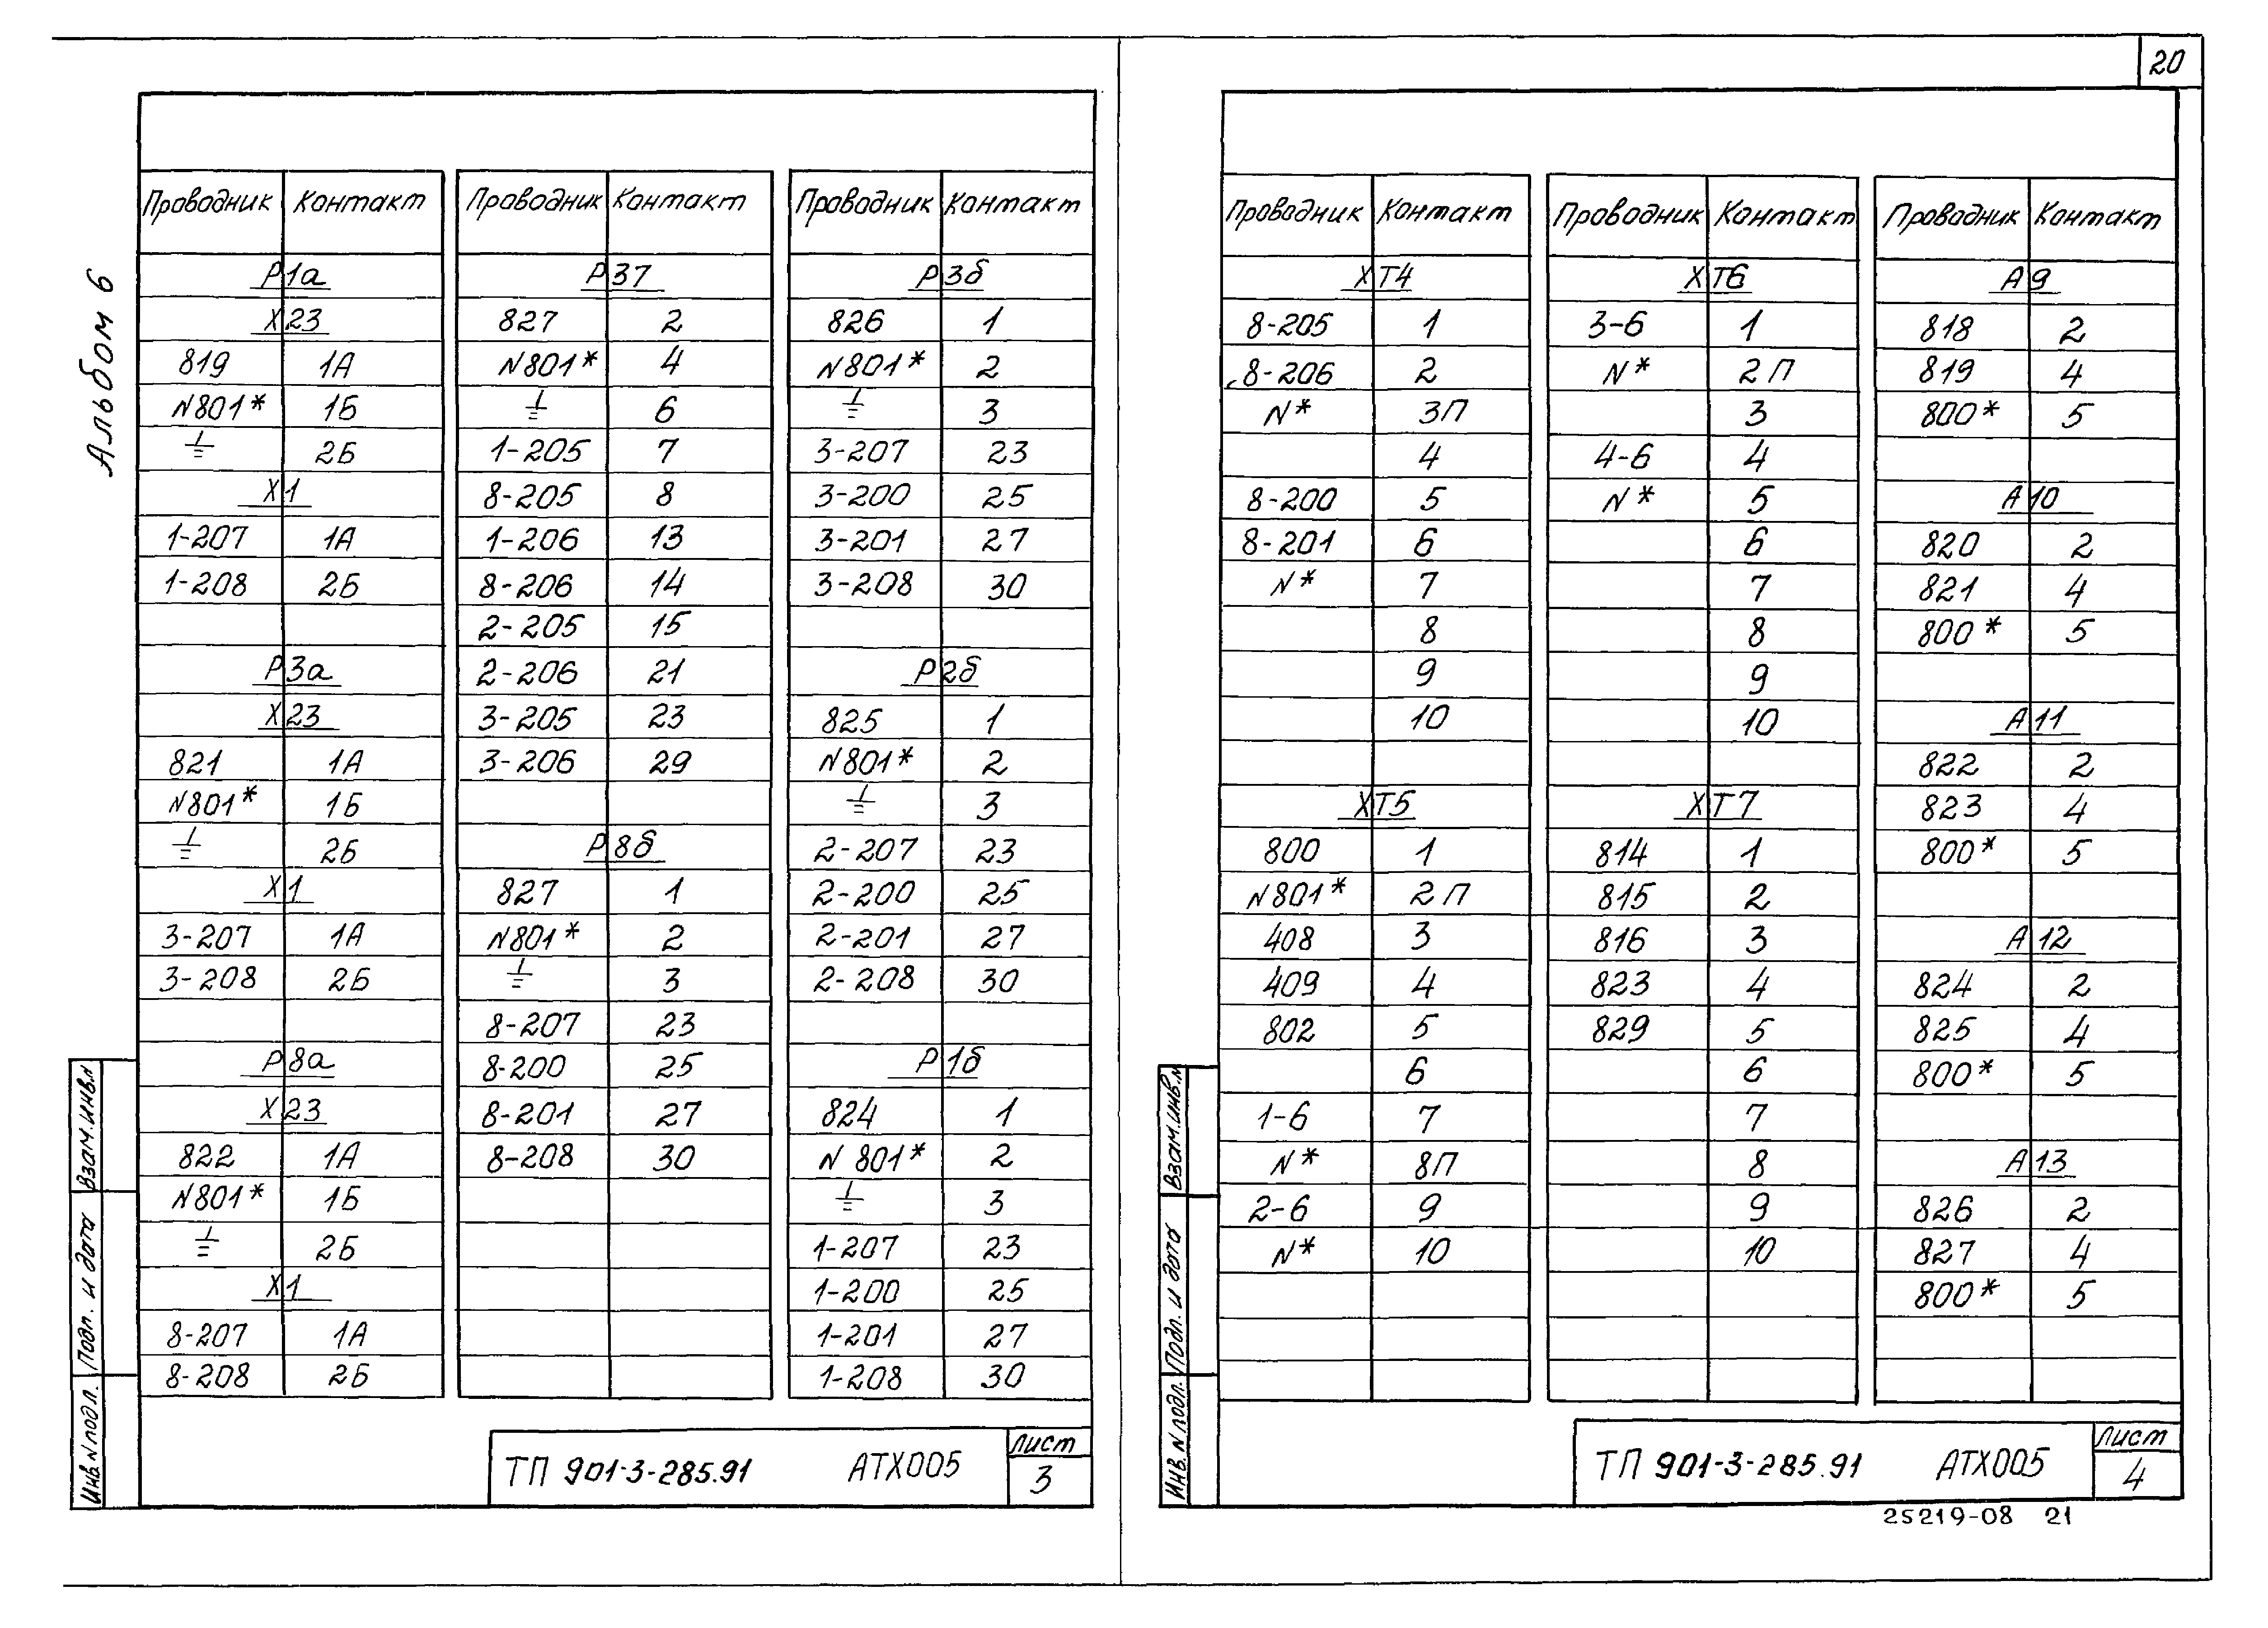 20
Альбом 6
Проводник Контакт
Р1а
Х23
819 1А
N801* 1Б
⏚ 2Б
Х1
1-207 1А
1-208 2Б
Р3а
Х23
821 1А
N801* 1Б
⏚ 2Б
Х1
3-207 1А
3-208 2Б
Р8а
Х23
822 1А
N801* 1Б
⏚ 2Б
Х1
8-207 1А
8-208 2Б
Проводник Контакт
Р37
827 2
N801* 4
⏚ 6
1-205 7
8-205 8
1-206 13
8-206 14
2-205 15
2-206 21
3-205 23
3-206 29
Р8б
827 1
N801* 2
⏚ 3
8-207 23
8-200 25
8-201 27
8-208 30
Проводник Контакт
Р3б
826 1
N801* 2
⏚ 3
3-207 23
3-200 25
3-201 27
3-208 30
Р2б
825 1
N801* 2
⏚ 3
2-207 23
2-200 25
2-201 27
2-208 30
Р1б
824 1
N 801* 2
⏚ 3
1-207 23
1-200 25
1-201 27
1-208 30
Взам.инв.N
Подп. и дата
Инв.N подл.
ТП 901-3-285.91 АТХ005
Лист
3
Проводник Контакт
ХТ4
8-205 1
8-206 2
N* 3П
4
8-200 5
8-201 6
N* 7
8
9
10
ХТ5
800 1
N801* 2П
408 3
409 4
802 5
6
1-6 7
N* 8П
2-6 9
N* 10
Проводник Контакт
ХТ6
3-6 1
N* 2П
3
4-6 4
N* 5
6
7
8
9
10
ХТ7
814 1
815 2
816 3
823 4
829 5
6
7
8
9
10
Проводник Контакт
А9
818 2
819 4
800* 5
А10
820 2
821 4
800* 5
А11
822 2
823 4
800* 5
А12
824 2
825 4
800* 5
А13
826 2
827 4
800* 5
Взам.инв.N
Подп. и дата
Инв.N подл.
ТП 901-3-285.91 АТХ005
Лист
4
25219-08 21